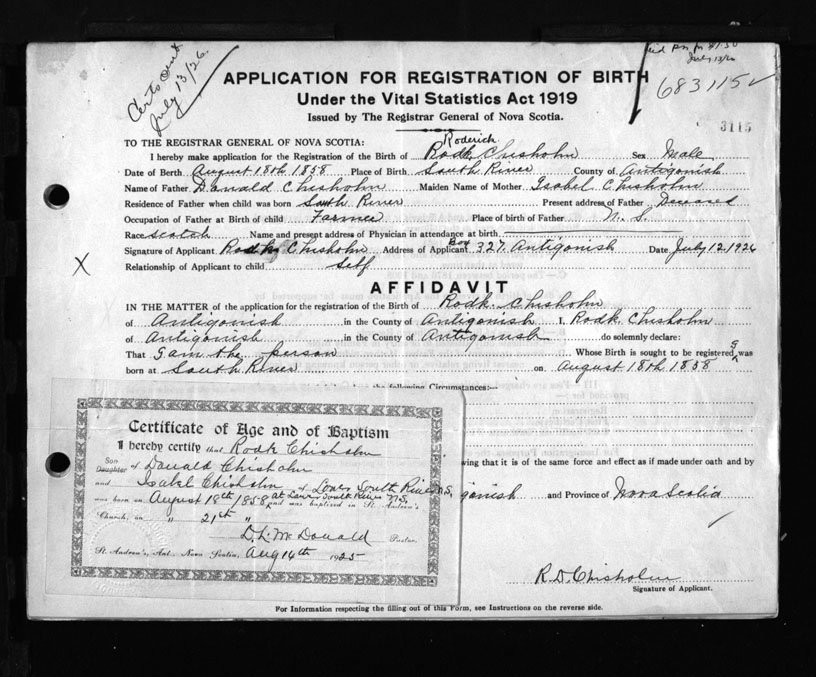 Certs sent
July 13/26
July 13/26
683115 ✓
3115
APPLICATION FOR REGISTRATION OF BIRTH
Under the Vital Statistics Act 1919
Issued by The Registrar General of Nova Scotia.
TO THE REGISTRAR GENERAL OF NOVA SCOTIA:
Roderick
I hereby make application for the Registration of the Birth of Rodk. Chisholm Sex Male
Date of Berth August 18th 1858 Place of Birth South River County of Antigonish
Name of Father Donald Chisholm Maiden Name of Mother Isabel Chisholm
Residence of Father when child was born South River Present address of Father Deceased
Occupation of Father at Birth of child Farmer Place of birth of Father N. S.
Race Scotch Name and present Address of Physician in attendance at birth
Signature of Applicant Rodk Chisholm Address of Applicant Box 327 Antigonish Date July 12 1926
Relationship of Applicant to child Self
X
AFFIDAVIT
IN THE MATTER of the application for the registration of the Birth of Rodk. Chisholm
of Antigonish in the County of Antigonish I. Rodk. Chisholm
of Antigonish in the County of Antigonish do solemnly declare:
That I am the person Whose Birth is sought to be registered was
born at South River on August 18th 1858
the following Circumstances:—
Certificate of Age and of Baptism
I hereby certify that Rodk Chisholm
Son
Daughter of Donald Chisholm
and Isabel Chisholm of Lower South River N.S.
was born on August 18th 1858 at Lower South River N.S. and was baptized in St. Andrew's
Church, on " 21st "
D. L. McDonald Pastor.
St. Andrew's, Ant., Nova Scotia, Aug 14th 1925
wing that it is of the same force and effect as if made under oath and by
gonish and Province of Nova Scotia
R. D. Chisholm
Signature of Applicant.
For Information respecting the filling out of this Form, see Instructions on the reverse side.